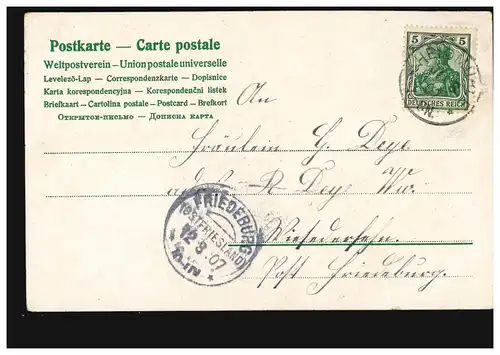 Postkarte — Carte postale
Weltpostverein – Union postale universelle
Levelező-Lap — Correspondenzkarte — Dopisnice
Karta korespondencyjna — Korespondenční listek
Briefkaart – Cartolina postale – Postcard – Brefkort
Открытое-письмо — Дописна карта
5 5
DEUTSCHES REICH
An
Fräulein H. Deye
R Deye Ww.
Wiesederfehn.
Post Friedeburg.
FRIEDEBURG
(OSTFRIESLAND)
12 3 07